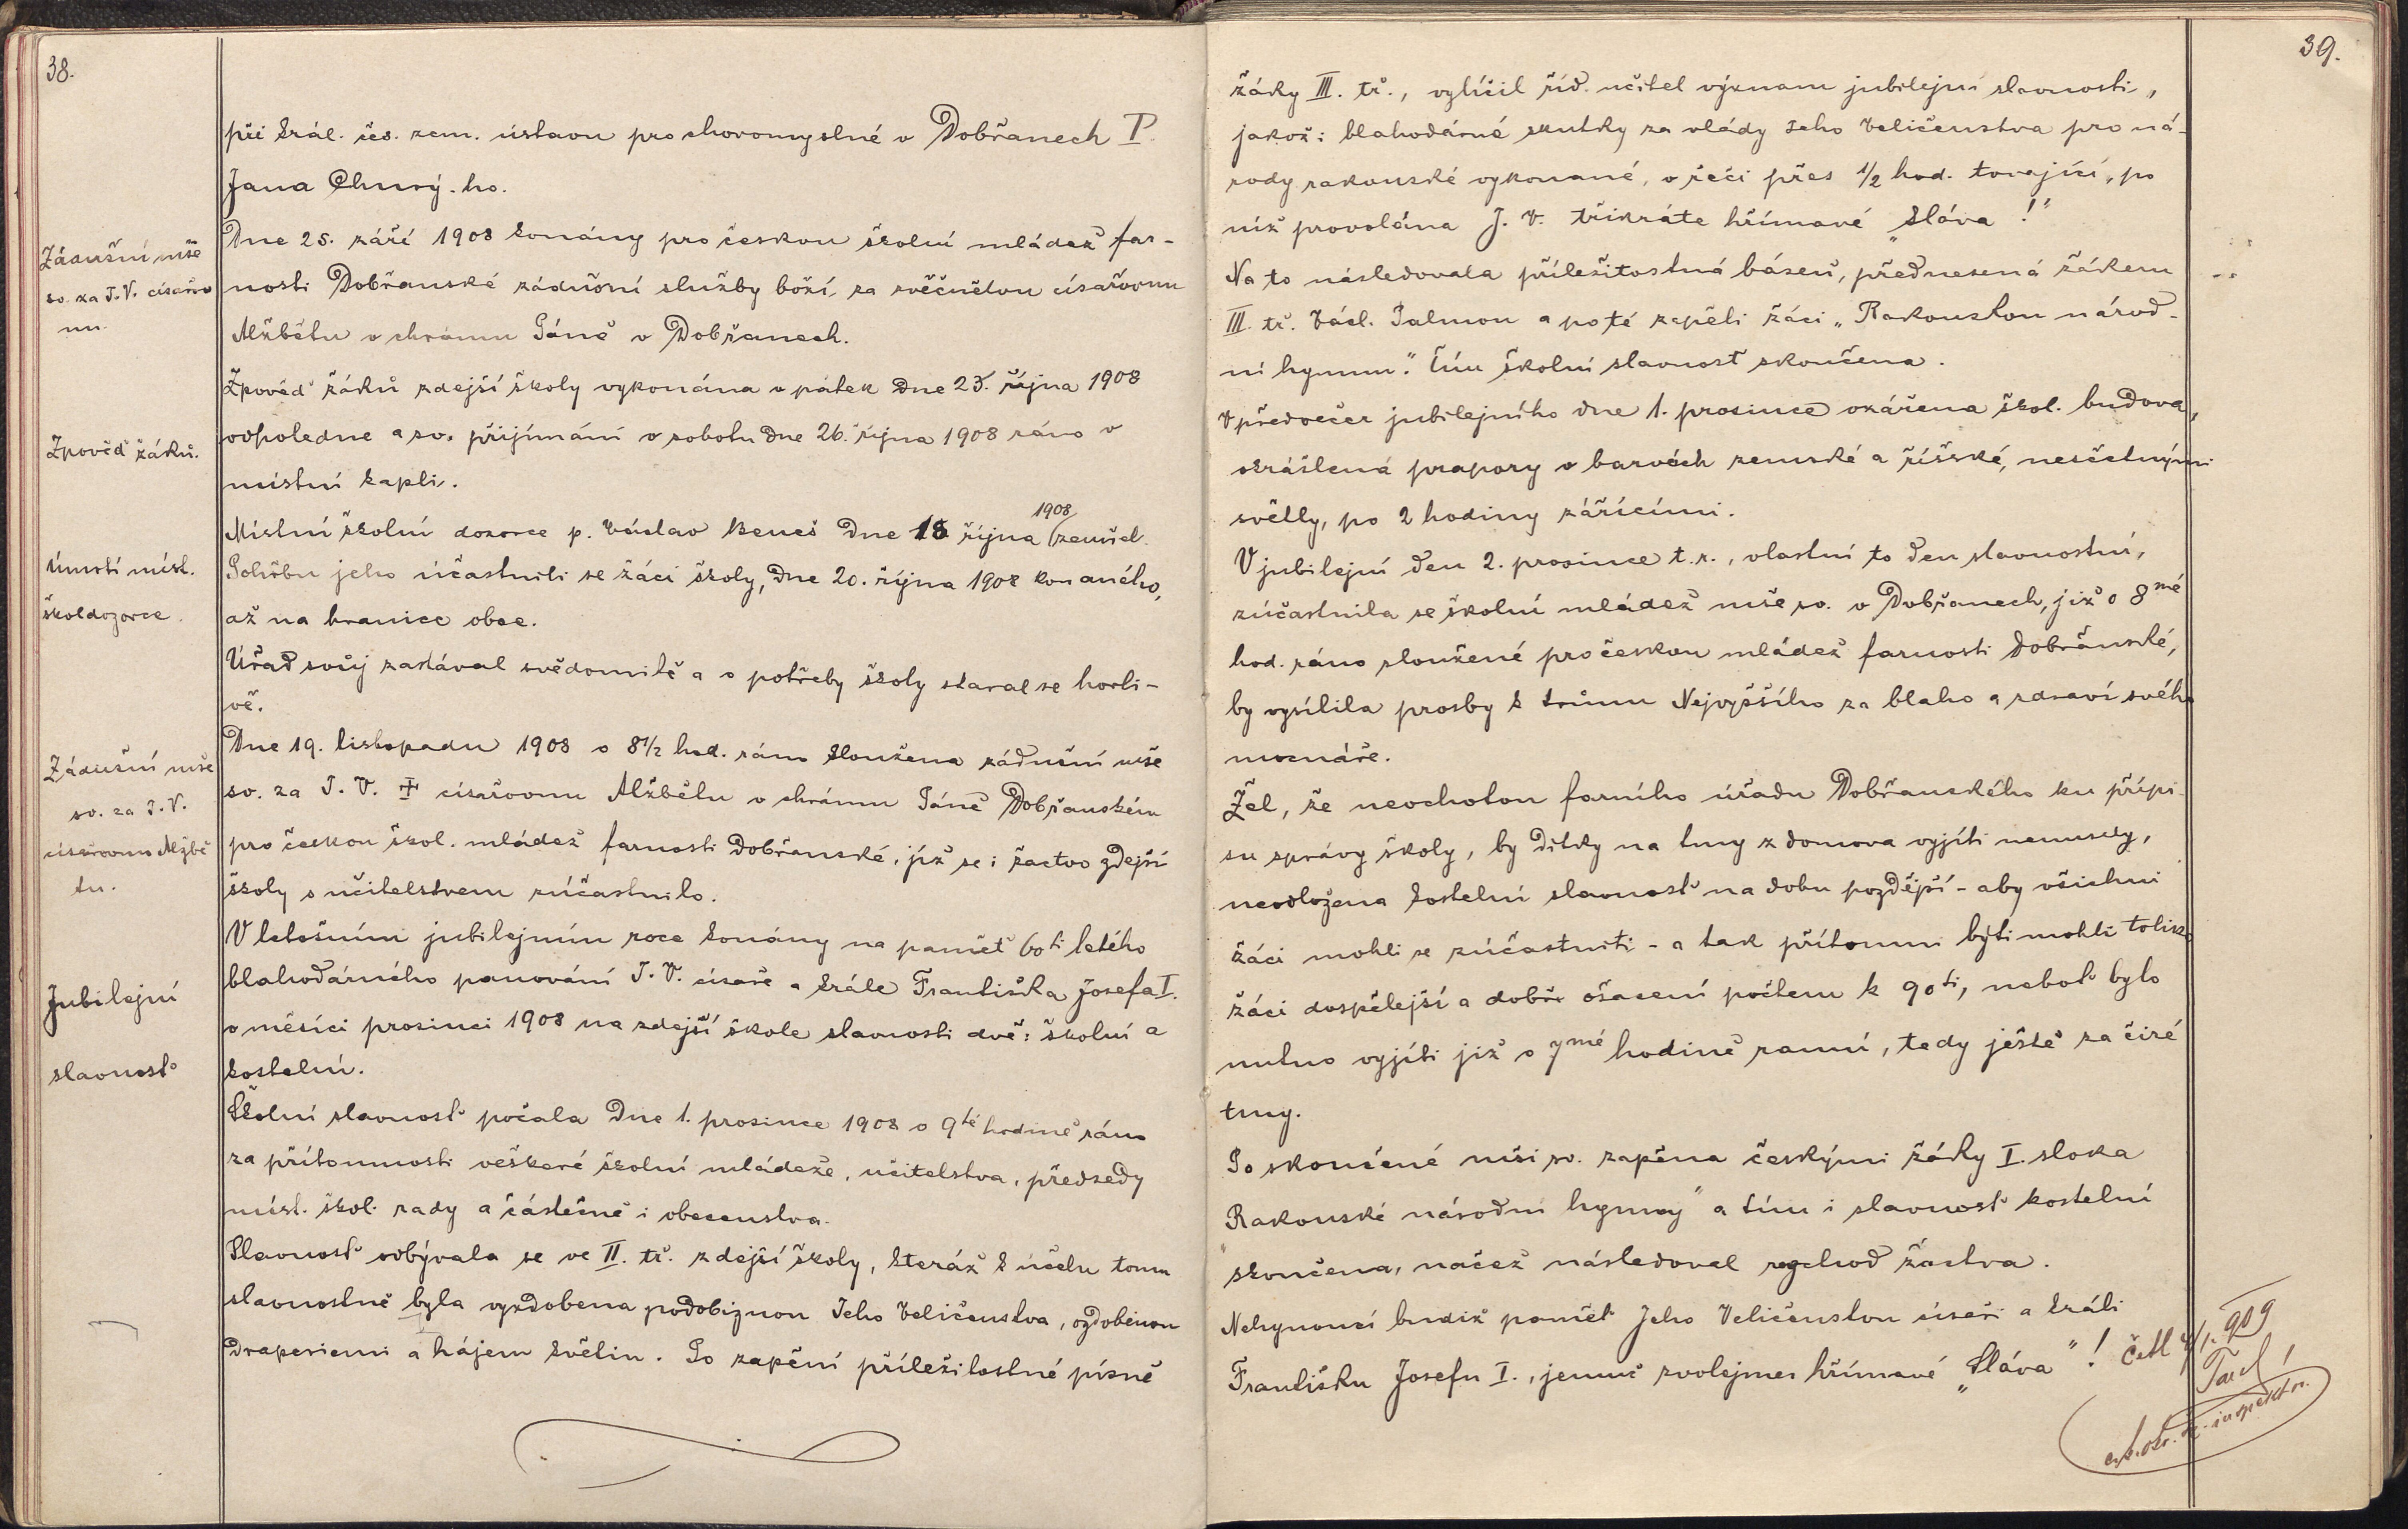 38.
při král. čes. zem. ústavu pro choromyslné v Dobřanech P.
Jana Churý-ho.
Zádušní mše
sv. za J. V. císařov
nu.
Dne 25. září 1908 konány pro českou školní mládež far-
nosti Dobřanské zádušní služby boží za zvěčnělou císařovnu
Alžbětu v chrámu Páně v Dobřanech.
Zpověď žáků.
Zpověď žáků zdejší školy vykonána v pátek dne 25. října 1908
odpoledne a sv. přijímání v sobotu dne 26. října 1908 ráno v
místní kapli.
Úmrtí míst.
škol dozorce.
Místní školní dozorce p. Václav Beneš dne 18 října 1908 zemřel.
Pohřbu jeho účastnili se žáci školy, dne 20. října 1908 konaného,
až na hranice obce.
Úřad svůj zastával svědomitě a o potřeby školy staral se horli-
vě.
Zádušní mše
sv. za J. V.
císařovnu Alžbě
tu.
Dne 19. listopadu 1908 o 8 1/2 hod. ráno sloužena zádušní mše
sv. za J. V. ✝ císařovnu Alžbětu v chrámu Páně Dobřanském
pro českou škol. mládež farnosti Dobřanské, jíž se i žactvo zdejší
školy s učitelstvem zúčastnilo.
Jubilejní
slavnosť
V letošním jubilejním roce konány na paměť 60ti letého
blahodárného panování J. V. císaře a krále Františka Josefa I.
v měsíci prosinci 1908 na zdejší škole slavnosti dvě: školní a
kostelní.
Školní slavnosť počala dne 1. prosince 1908 o 9té hodině ráno
za přítomnosti veškeré školní mládeže, učitelstva, předsedy
míst. škol. rady a částečně i obecenstva.
Slavnosť odbývala se ve II. tř. zdejší školy, kteráž k účelu tomu
slavnostně byla vyzdobena podobiznou Jeho Veličenstva, ozdobenou
draperiemi a hájem květin. Po zapění příležitostné písně
39.
žáky III. tř., vylíčil říd. učitel význam jubilejní slavnosti,
jakož i blahodárné skutky za vlády Jeho Veličenstva pro ná-
rody rakouské vykonané, v řeči přes 1/2 hod. trvající, po
níž provolána J. V. třikráte hřímavé „Sláva!"
Na to následovala příležitostná báseň, přednesená žákem
III. tř. Václ. Palmou a poté zapěli žáci „Rakouskou národ-
ní hymnu." Tím školní slavnost skončena.
V předvečer jubilejního dne 1. prosince ozářena škol. budova,
okrášlená prapory v barvách zemské a říšské, nesčetnými
světly, po 2 hodiny zářícími.
V jubilejní den 2. prosince t. r., vlastní to den slavnostní,
zúčastnila se školní mládež mše sv. v Dobřanech, již o 8mé
hod. ráno sloužené pro českou mládež farnosti Dobřanské,
by vysílila prosby k trůnu Nejvyššího za blaho a zdraví svého
mocnáře.
Žel, že neochotou farního úřadu Dobřanského ku přípi-
su správy školy, by dítky na tmy z domova vyjíti nemusely,
neodložena kostelní slavnosť na dobu pozdější - aby všichni
žáci mohli se zúčastniti - a tak přítomni býti mohli toliko
žáci dospělejší a dobře ošacení počtem k 90ti, neboť bylo
nutno vyjíti již o 7mé hodině ranní, tedy ještě za čiré
tmy.
Po skončené mši sv. zapěna českými žáky I. sloka
„Rakouské národní hymny" a tím i slavnosť kostelní
skončena, načež následoval rozchod žactva.
Nehynoucí budiž paměť Jeho Veličenstvu císaři a králi
Františku Josefu I., jemuž zvolejmež hřímavé „Sláva"!
Četl 4/1. 909
c. k. okr. šk. inspektor.